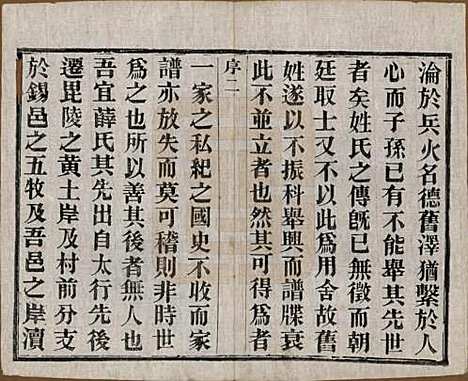 淪於兵火名德舊澤猶繫於人
心而子孫已有不能舉其先世
者矣姓氏之傳旣已無徵而朝
廷取士又不以此為用舍故舊
姓遂以不振科舉興而譜牒衰
此不並立者也然其可得為者
序二
一家之私紀之國史不收而家
譜亦放失而莫可稽則非時世
為之也所以善其後者無人也
吾宜薛氏其先出自太行之岸
遷毘陵之黃土岸及村前分支
於錫邑之五牧及吾邑之岸瀆